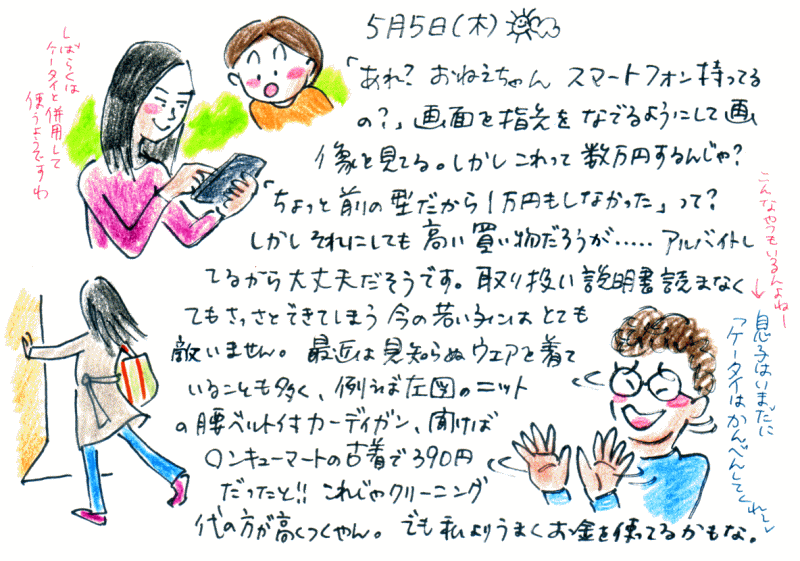 5月5日(木)
「あれ? おねえちゃん スマートフォン持ってる
の?」画面を指先をなでるようにして画
像を見てる。しかしこれって数万円するんじゃ?
「ちょっと前の型だから1万円もしなかった」って?
しかしそれにしても高い買い物だろうが……アルバイトし
てるから大丈夫だそうです。取り扱い説明書読まなく
てもさっさとできてしまう今の若い子にはとても
敵いません。最近は見知らぬウェアを着て
いることも多く、例えば左図のニット
の腰ベルト付カーディガン、聞けば
ロンキューマートの古着で390円
だったと!! これじゃクリーニング
代の方が高くつくやん。でも私よりうまくお金を使ってるかもな。
しばらくは
ケータイと併用して
使うようですわ
こんなやつもいるんよねー
息子はいまだに
「ケータイはかんべんしてくれ〜」